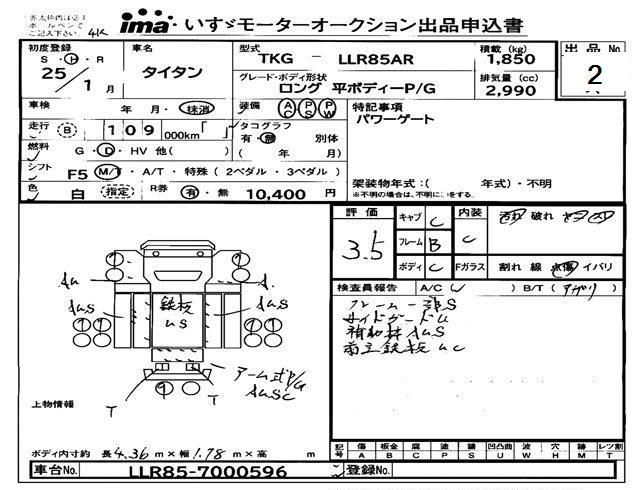 赤太枠内は必ず
ボールペンで
ご記入下さい 4K
ima いすゞモーターオークション出品申込書
初度登録 車名 型式 TKG － LLR85AR 積載 (kg) 1,850 出品No.
S・H・R 25/1月 タイタン グレード・ボディ形状 ロング 平ボディーP/G 排気量 (cc) 2,990 2
車検 年 月・抹消 装備 AC PS PW 特記事項
走行 B 109 000km「 」 タコグラフ パワーゲート
有・無 別体
燃料 G・D・HV 他( ) ( 年 月)
シフト F5 M/T・A/T・特殊(2ペダル・3ペダル)
架装物年式:( 年式)・不明
色 白 指定 R券 有・無 10,400 円 ※不明の場合は、不明に○をする。
評価 キャブ C 内装 汚れ 破れ
3.5 フレーム B C
ボディ C Fガラス 割れ 線 点傷 イバリ
検査員報告 A/C( ) B/T(アガリ)
フレーム一部S
サイドガードU
補助材AuS
荷立鉄板uc
Au A.
AuS 鉄板 AuS
uS
アーム式P/G
AuSC
T T
上物情報
ボディ内寸約 長4.36m×幅1.78m×高 m
記号 傷 板金 腐 塗 錆 凹凸曲 波 穴 跡 レツ割
A B C P S U W H M T
車台No. LLR85-7000596 登録No.